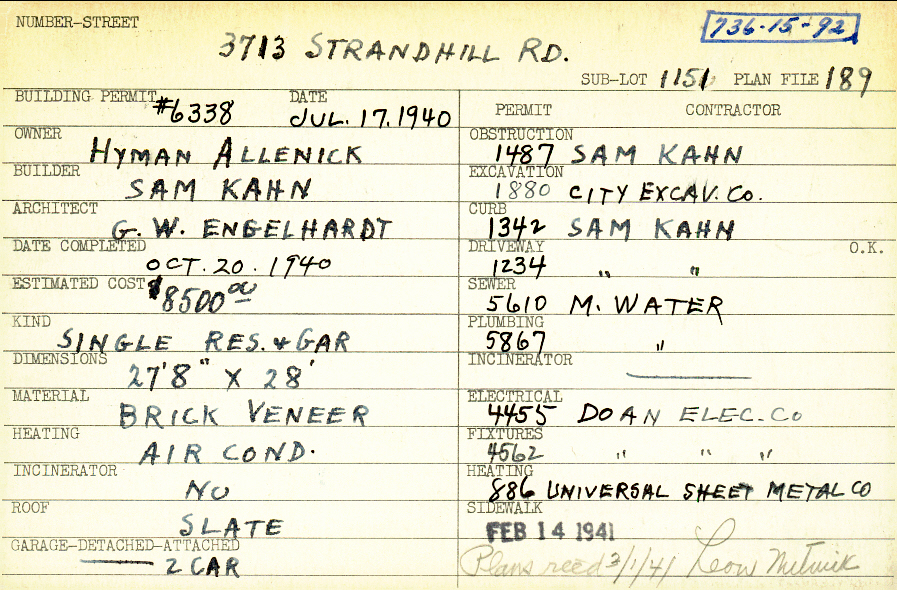 NUMBER-STREET
736-15-92
3713 STRANDHILL RD.
SUB-LOT 1151 PLAN FILE 189
BUILDING PERMIT #6338 DATE JUL. 17. 1940
OWNER
HYMAN ALLENICK
BUILDER
SAM KAHN
ARCHITECT
G. W. ENGELHARDT
DATE COMPLETED
OCT. 20. 1940
ESTIMATED COST $8500 00
KIND
SINGLE RES. & GAR
DIMENSIONS
27'8" X 28'
MATERIAL
BRICK VENEER
HEATING
AIR COND.
INCINERATOR
NO
ROOF
SLATE
GARAGE-DETACHED-ATTACHED
2 CAR
PERMIT CONTRACTOR
OBSTRUCTION
1487 SAM KAHN
EXCAVATION
1880 CITY EXCAV. CO.
CURB
1342 SAM KAHN
DRIVEWAY O.K.
1234 " "
SEWER
5610 M. WATER
PLUMBING
5867 "
INCINERATOR
ELECTRICAL
4455 DOAN ELEC. CO
FIXTURES
4562 " " "
HEATING
886 UNIVERSAL SHEET METAL CO
SIDEWALK
FEB 14 1941
Plans recd 3/1/41 Leon